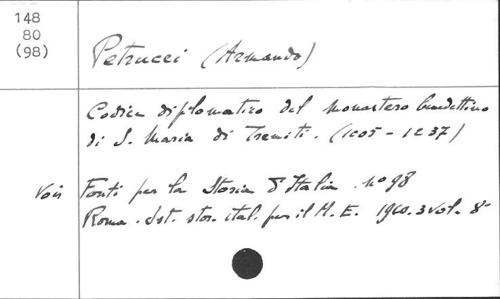 148
80
(98)
Petrucci (Armando)
Codice diplomatico del monastero benedettino
di S. Maria di Tremiti. (1005-1237)
Voir Fonti per la Storia d'Italia. nº 98
Roma. Ist. stor. ital. per il M. E. 1960. 3 vol. 8º